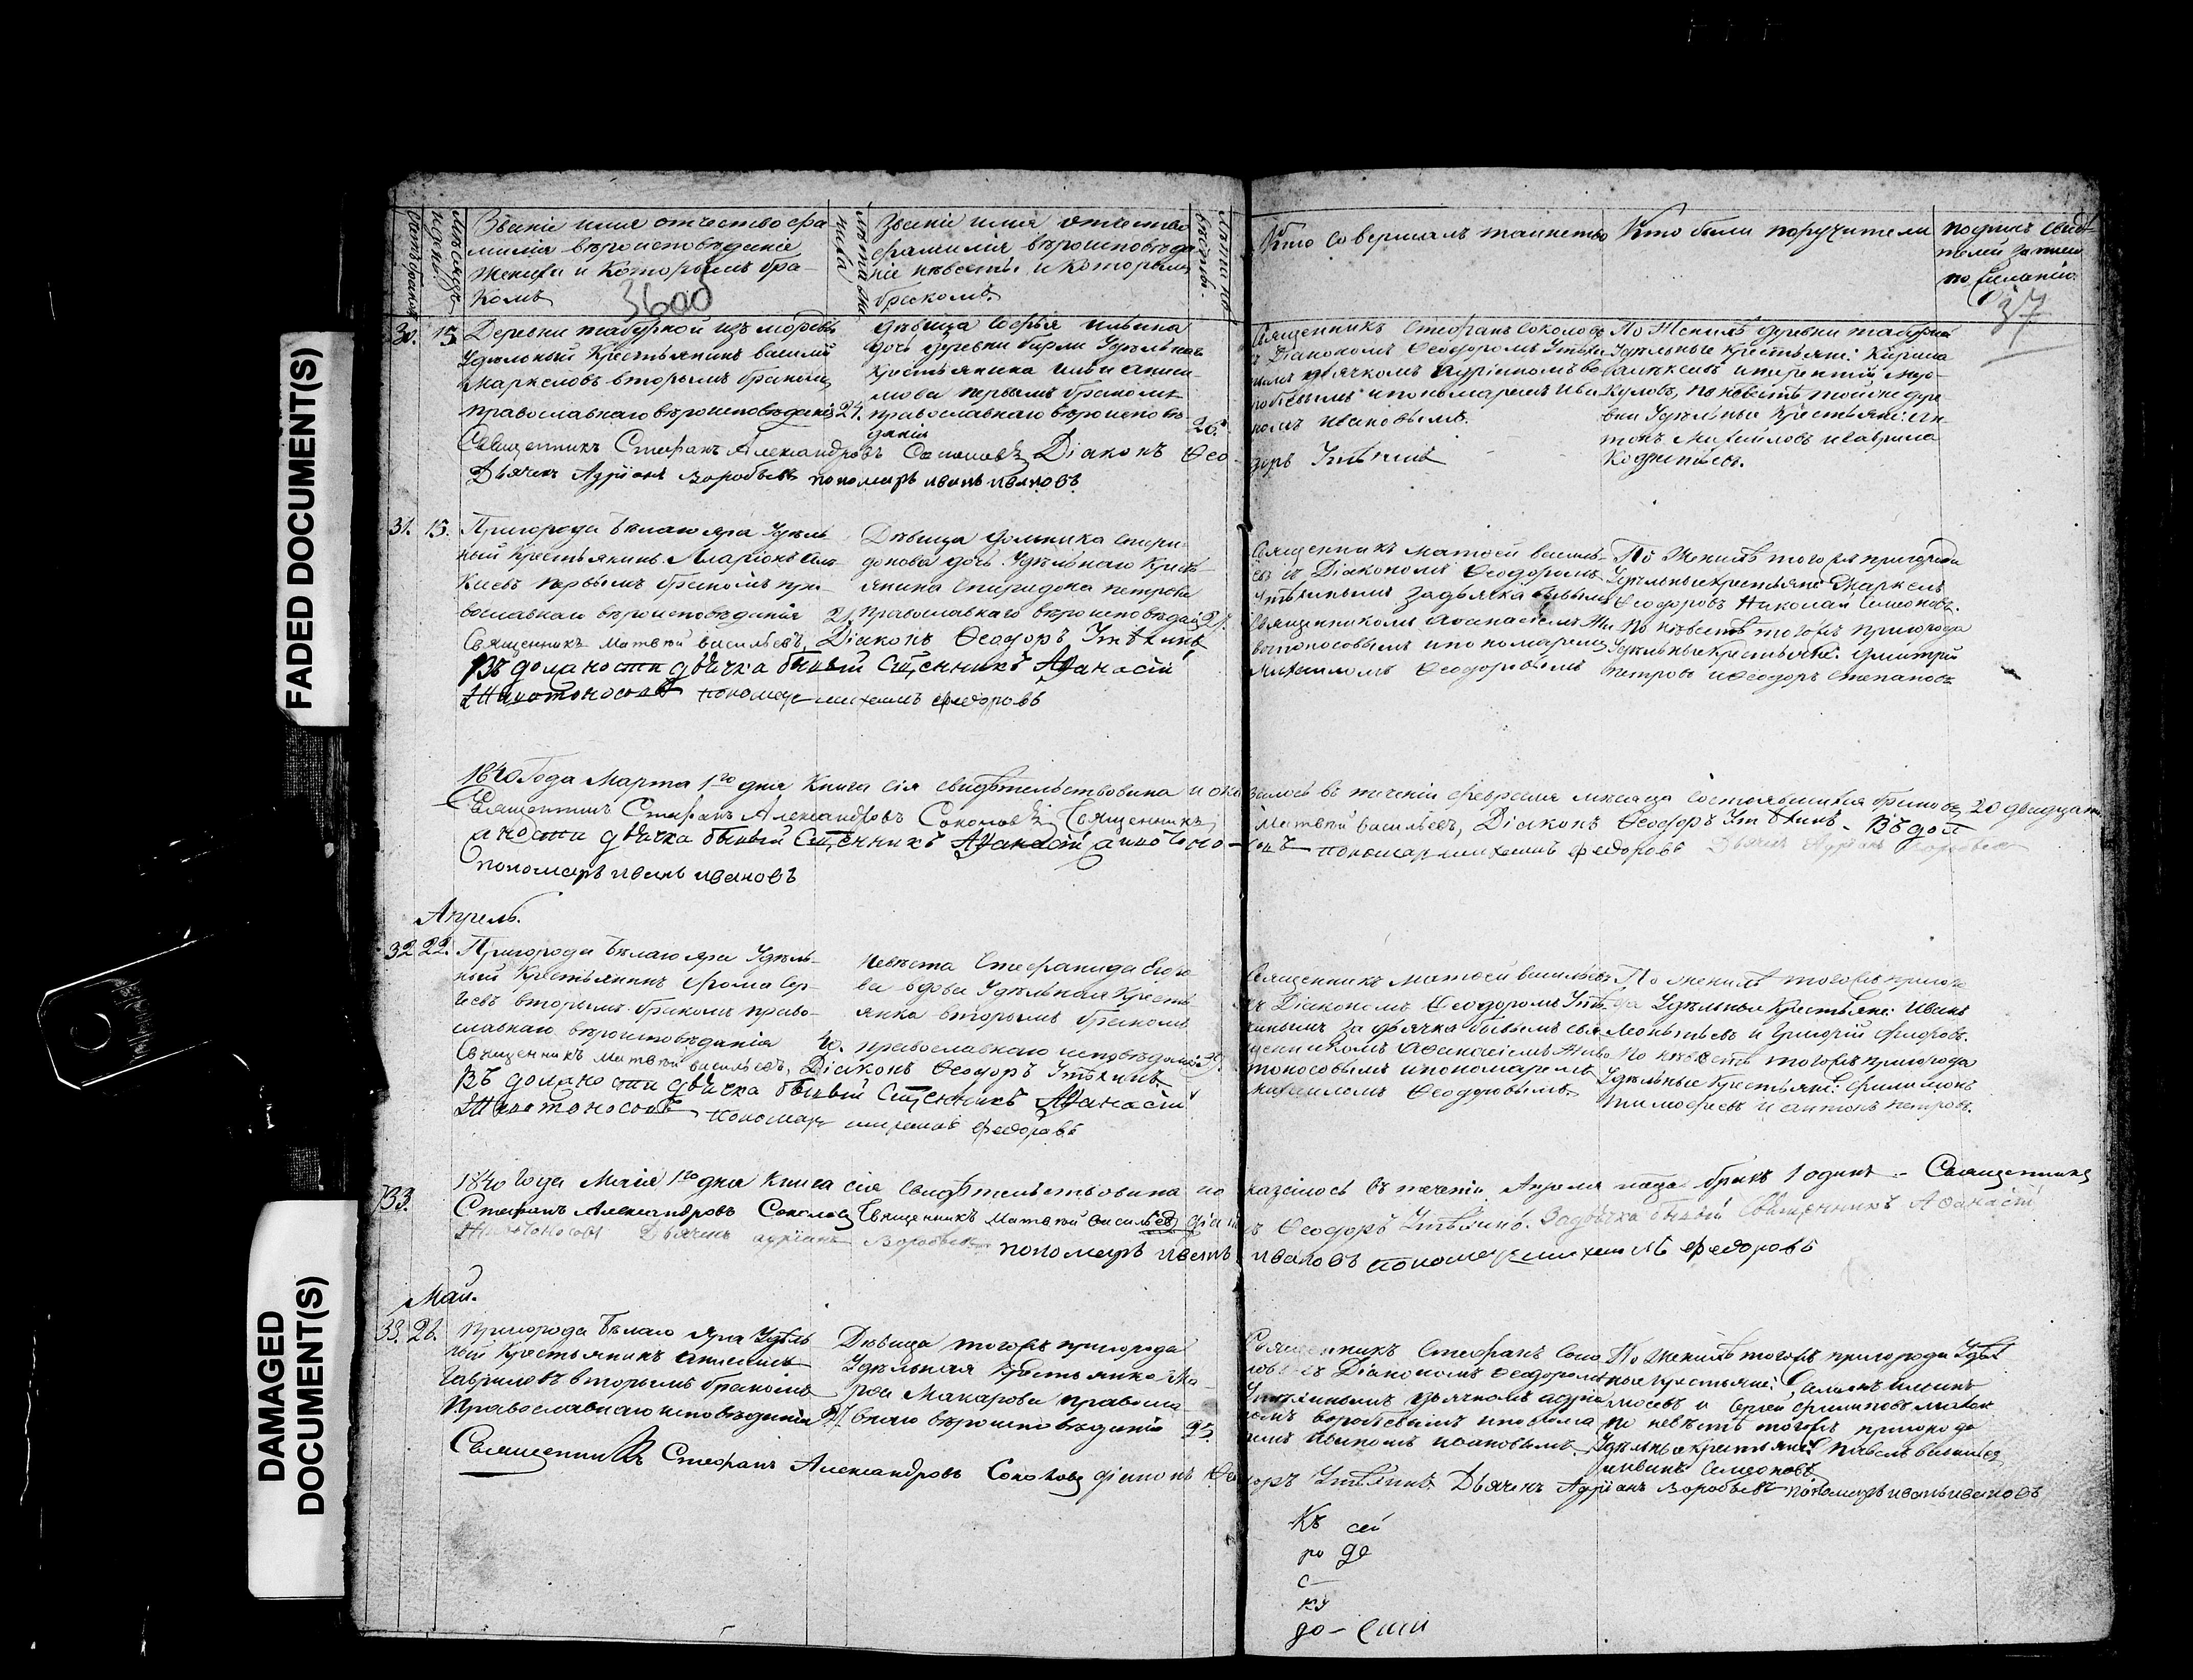 FADED DOCUMENT(S)
DAMAGED DOCUMENT(S)
Званіе имя отчество фа
милія вѣроисповѣданіе
жениха и которымъ бра-
комъ
3600
Званіе имя отчество
фамилія вѣроисповѣда
ніе невѣсты и которымъ
бракомъ.
Кто совершалъ таинство
Кто были поручители
подпись свидѣ
телей
по желанію.
37
30. 15. Деревни изъ мордвы
Удѣльный Крестьянинъ Василій
Маркеловъ вторымъ бракомъ
православнаго вѣроисповѣданія 24.
дѣвица Софья Ильина
дочь деревни Удѣльнаго
крестьянина Ильи
первымъ бракомъ
православнаго вѣроисповѣ
данія 26.
Священникъ Стефанъ Соколовъ
съ Діакономъ Ѳеодоромъ
дьячкомъ Адріаномъ Во
робьевымъ и пономаремъ Ива
номъ Ивановымъ.
По женихѣ деревни
Удѣльные Крестьяне: Кирила
по невѣстѣ тойже дере
вни Удѣльные Крестьяне: Ан
тонъ Михайловъ и Гаврила
Священникъ Стефанъ Александровъ Соколовъ Діаконъ Ѳео-
доръ
Дьячекъ Адріанъ Воробьевъ пономарь Иванъ Ивановъ
31. 15. Пригорода Бѣлаго яра Удѣль
ный крестьянинъ Иларіонъ Але
ксѣевъ первымъ бракомъ пра-
вославнаго вѣроисповѣданія 21.
Дѣвица Домника Спири-
донова дочь Удѣльнаго Крест
янина Спиридона Петрова
Православнаго вѣроисповѣдан 21.
Священникъ Матѳей Василь-
евъ съ Діакономъ Ѳеодоромъ
за дьячка бывшимъ
Священникомъ Аѳанасіемъ Жи
вотоносовымъ и пономаремъ
Михаиломъ Ѳеодоровымъ
По Женихѣ тогоже пригорода
Удѣльные крестьяне Маркелъ
Ѳеодоровъ Николай Семеновъ.
По невѣстѣ тогожъ пригорода
Удѣльные крестьяне: Дмитрій
Петровъ и Ѳеодоръ Степановъ
Священникъ Матвѣй Васильевъ, Діаконъ Ѳеодоръ
Въ должности дьячка бывый Сщенникъ Аѳанасій
Животоносовъ пономарь михаилъ федоровъ
1840 Года Марта 1го дня Книга сія свидѣтельствована и ока
залось въ теченіи февраля мѣсяца состоявшихся браковъ 20 двадцать
Священникъ Стефанъ Александровъ Соколовъ Священникъ
Матвѣй Васильевъ, Діаконъ Ѳеодоръ Въ дол
жности дьячка бывый Сщенникъ Аѳанасій
пономарь михаилъ федоровъ Дьячекъ Адріанъ Воробьевъ
пономарь иванъ ивановъ
Апрель.
32. 22. Пригорода Бѣлаго яра Удѣль-
ный Крестьянинъ Фома Сер-
геевъ вторымъ бракомъ право-
славнаго вѣроисповѣданія 40.
Невѣста Стефанида Егоро
ва вдова Удѣльная Крестя
янка вторымъ бракомъ
православнаго исповѣданія 39.
Священникъ Матѳей Васильевъ
съ Діакономъ Ѳеодоромъ
за дьячка бывшимъ свя
щенникомъ Аѳанасіемъ Живо
тоносовымъ и пономаремъ
Михаиломъ Ѳеодоровымъ.
По женихѣ тогожъ пригоро
да Удѣльные Крестьяне: Иванъ
Леонтьевъ и Григорій Федоровъ.
По невѣстѣ тогожъ пригорода
Удѣльные Крестьяне: Филимонъ
Тимофеевъ и Антонъ Петровъ.
Священникъ Матвѣй Васильевъ, Діаконъ Ѳеодоръ
Въ должности дьячка бывый Сщенникъ Аѳанасій
Животоносовъ пономарь михаилъ федоровъ
33. 1840 Года Маія 1го дня Книга сія свидѣтельствована и о
казалось въ теченіи Апреля мѣсяца бракъ 1 одинъ - Священникъ
Стефанъ Александровъ Соколовъ Священникъ Матвѣй Васильевъ діакон
ъ Ѳеодоръ За дьячка бывый Священникъ Аѳанасій
Животоносовъ Дьячекъ Адріанъ Воробьевъ пономарь иванъ
ивановъ пономарь михаилъ федоровъ
Май.
33. 26. Пригорода Бѣлаго Яра Удѣль
ный Крестьянинъ Анисимъ
Гавриловъ вторымъ бракомъ
Православнаго исповѣданія 27.
Дѣвица тогожъ пригорода
Удѣльная крестьянка Ма-
рѳа Макарова правосла
внаго вѣроисповѣданія 25.
Священникъ Стефанъ Соко
ловъ съ Діакономъ Ѳеодоромъ
дьячкомъ Адріа
номъ Воробьевымъ и понома
ремъ Иваномъ Ивановымъ.
По Женихѣ тогожъ пригорода Удѣл
ные крестьяне:
и Сергей Филиповъ
по невѣстѣ тогожъ пригорода
Удѣльные крестьяне: Павелъ Васильевъ
и Иванъ Семеновъ
Священникъ Стефанъ Александровъ Соколовъ діаконъ Ѳео
доръ Дьячекъ Адріанъ Воробьевъ пономарь иванъ ивановъ
Къ сей
ро де
с
ку
до-